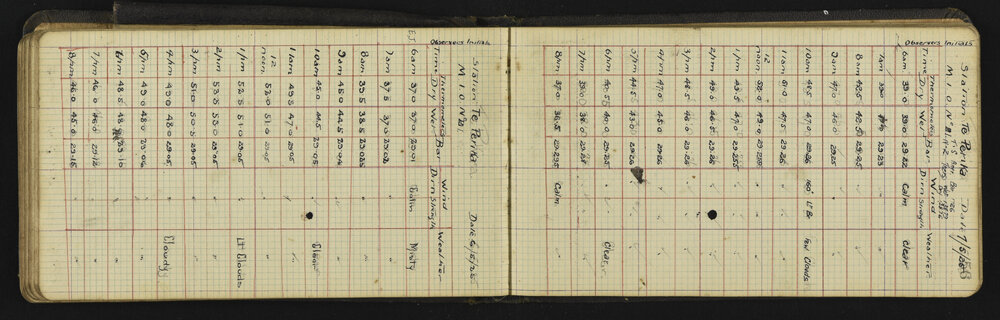 Observers Initials
E.J.
Station Te Perika Date 6/5/25
M.I.O. N°81
Time Thermometers Bar Wind Weather
Dry Wet Dirn Strength
6am 37.0 37.0 29.01 Calm Misty
7am 37.5 37.0 29.02 " "
8am 38.5 29.025 " "
9am 45.0 44.5 29.04 " "
10am 45.0 44.5 29.05 " Clear
11am 49.5 47.0 29.05 " "
12 noon 52.0 51.0 29.05 " "
1pm 52.5 51.0 29.05 " Lt Clouds
2pm 53.5 53.0 29.05 " "
3pm 51.0 50.5 29.05 " "
4pm 49.0 48.0 29.05 " Cloudy
5pm 49.0 48.0 29.06 " "
6pm 48.5 48. 29.10 " "
7pm 46.0 46.0 29.12 " "
8pm 46.0 45.0 29.15 " "
Observers Initials
Station Te Perika Date 7/5/25
M.I.O. N°81
Time Thermometers Bar Wind Weather
Dry Wet Dirn Strength
6am 39.0 39.0 29.22 Calm Clear
7am 29.23 " "
8am 42.5 42.5 29.25 " "
9am 47.0 29.25 " "
10am 48.5 47.5 29.26 160° Lt Br Few Clouds
11am 51.0 48.0 29.26 " "
12 noon 52.0 49.0 29.255 " "
1pm 49.5 47.0 29.255 " "
2pm 49.0 46.5 29.26 " "
3pm 48.5 46.0 29.26 " "
4pm 47.0 45.0 29.26 " "
5pm 44.5 43.0 29.26 " "
6pm 40.5 40.0 29.25 " Clear
7pm 38.0 29.28 " "
8pm 37.0 36.5 29.295 Calm "